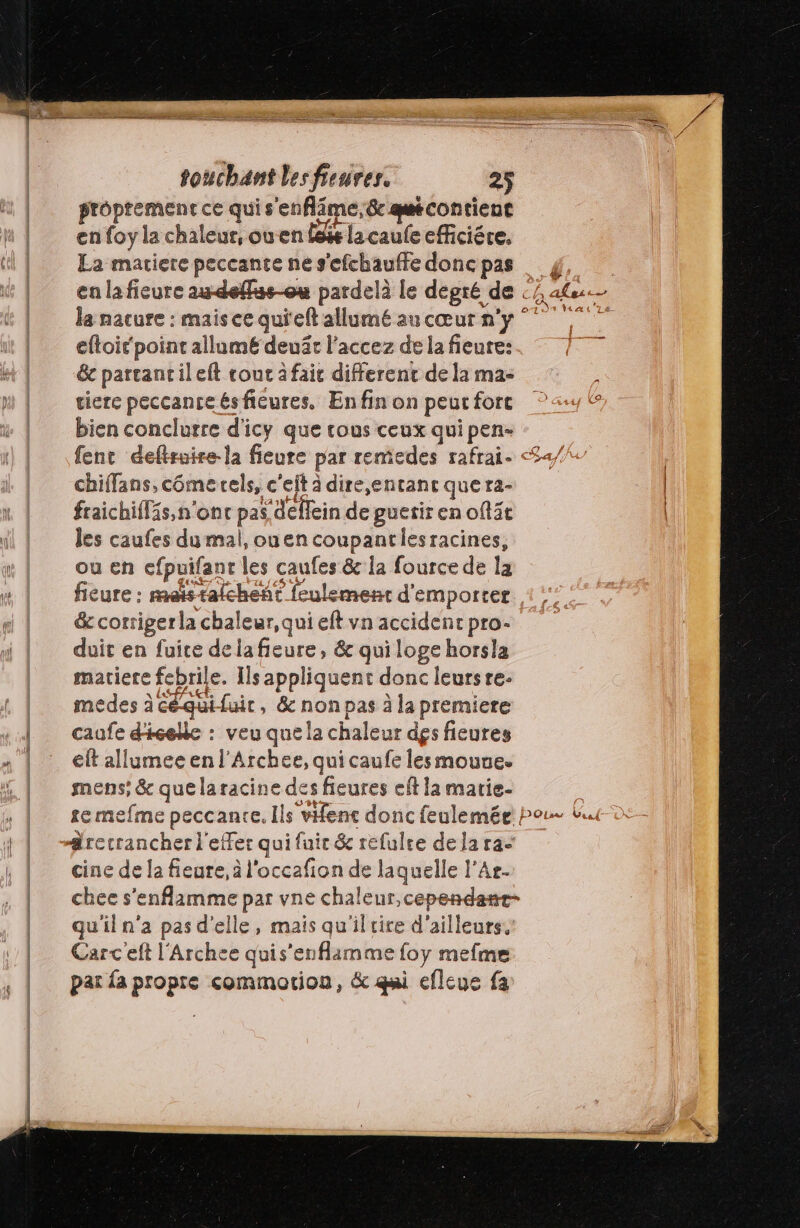 touchant les fieures. 25
proprement ce qui s'enflãme, & qui contient
en soy la chaleur, ou en sois la cause efficiéte.
La matiere peccante ne s'eschauffe donc pas
en la fieure au dessus ou pardelà le degré de
la nature : mais ce qui est allumé au cœur n'y
estoit point allumé deuãt l'accez de la fieure:
& partant il est tout à fait different de la ma-
tiere peccante és fieures. Enfin on peut fort
bien conclurre d'icy que tous ceux qui pen-
sent destruire la fieure par remedes rafrai-
chissans, cõme tels, c'est à dire, entant que ra-
fraichissãs, n'ont pas dessein de guerir en ostãt
les causes du mal, ou en coupant les racines,
ou en espuisant les causes & la source de la
fieure : mais taschent seulement d'emporter
& corriger la chaleur, qui est vn accident pro-
duit en suite de la fieure, & qui loge hors la
matiere febrile. Ils appliquent donc leurs re-
medes à cé qui suit, & non pas à la premiere
cause d'icelle : veu que la chaleur des fieures
est allumee en l'Archee, qui cause les mouue-
mens; & que la racine des fieures est la matie-
re mesme peccante. Ils visent donc seulemét
à retrancher l'effet qui suit & resulte de la ra-
cine de la fieure, à l'occasion de laquelle l'Ar-
chee s'enflamme par vne chaleur, cependant
qu'il n'a pas d'elle, mais qu'il tire d'ailleurs.
Car c'est l'Archee qui s'enflamme soy mesme
par sa propre commotion, & qui esleue sa